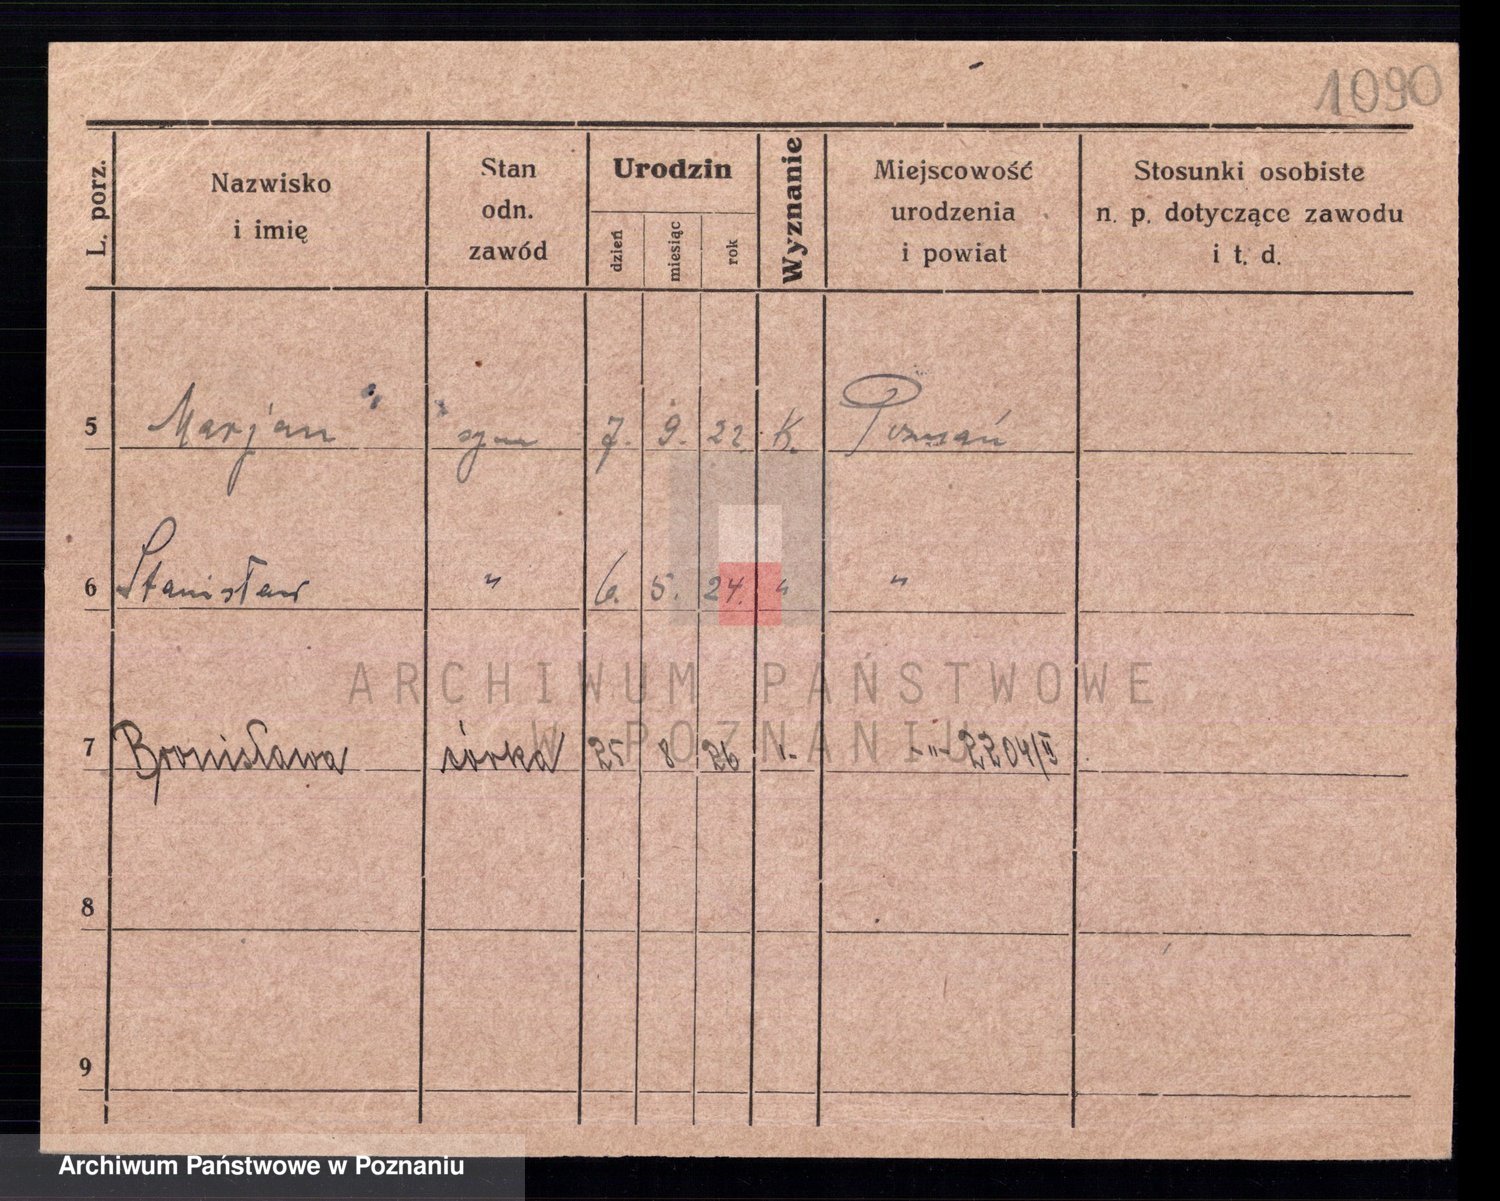 1090
L. porz.
Nazwisko
i imię
Stan
odn.
zawód
Urodzin
dzień
miesiąc
rok
Wyznanie
Miejscowość
urodzenia
i powiat
Stosunki osobiste
n. p. dotyczące zawodu
i t. d.
5 Marjan syn 7. 9. 22 K. Poznań
6 Stanisław " 6. 5. 24. " "
ARCHIWUM PAŃSTWOWE
W POZNANIU
7 Bronisława córka 25 8 26 -"- 2204/II
8
9
Archiwum Państwowe w Poznaniu